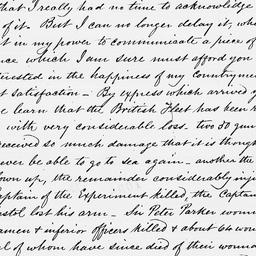 that I really had no time to acknowledge
of it. But I can no longer delay it, whe
t in my power to communicate a piece of
nce which I am sure must afford you
terested in the happiness of my Countryme
t satisfaction — By express which arrived y
e learn that the British Fleet has been r
with very considerable loss. two 50 gun
received so much damage that it is though
ever be able to go to sea again — another the
lown up, the remainder considerably inju
aptain of the Experiment killed, the Captain
istol lost his arm — Sir Peter Parker woun
amen & inferior officers killed & about 64 wou
al of whom have since died of their wound